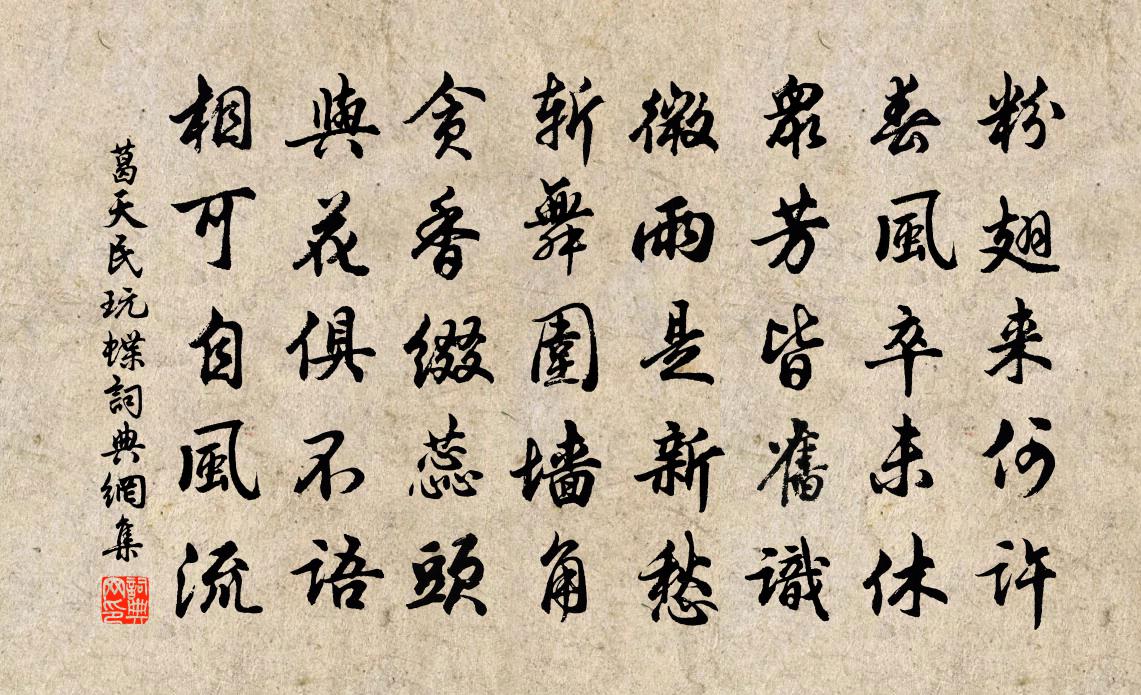 粉翅来何许
春風卒未休
眾芳皆舊識
微雨是新愁
斬舞圍墻角
贪香綴蕊頭
與花俱不語
相可自風流
葛天民玩蝶詞典網集
詞典網印